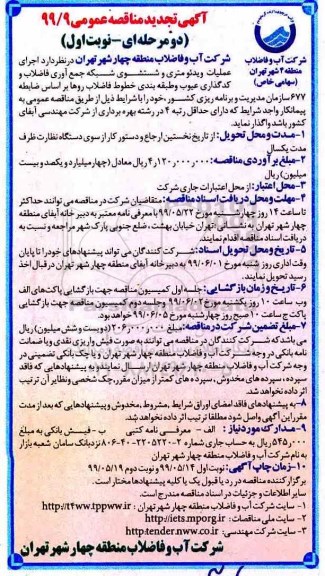 آگهی تجدید مناقصه عمومی ۹۹/۹
(دو مرحله‌ای-نوبت اول)
شرکت آب و فاضلاب
منطقه ۴ شهر تهران
(سهامی خاص)
شرکت آب و فاضلاب منطقه چهار شهر تهران در نظر دارد اجرای
عملیات ویدئو متری و شستشوی شبکه جمع آوری فاضلاب و
کدگذاری عیوب وطبقه بندی خطوط فاضلاب روها بر اساس ضابطه
۶۷۷ سازمان مدیریت و برنامه ریزی کشور، خود را با شرایط ذیل از طریق مناقصه عمومی به
پیمانکار واجد شرایط که دارای حداقل رتبه ۴ در رشته بهره برداری از شرکت مهندسی آبفای
کشور باشد واگذار نماید.
۱-مدت و محل تحویل: از تاریخ نخستین ارجاع و دستور کار از سوی دستگاه نظارت ظرف
مدت یکسال
۲-مبلغ برآوردی مناقصه: ۴،۱۲۰،۰۰۰،۰۰۰ ریال معادل (چهار میلیارد و یکصد و بیست
میلیون) ریال
۳-محل اعتبار: از محل اعتبارات جاری شرکت
۴-مهلت و محل دریافت اسناد مناقصه: متقاضیان شرکت در مناقصه می توانند حداکثر
تا ساعت ۱۴ روز چهارشنبه مورخ ۹۹/۰۵/۲۲ با معرفی نامه معتبر به دبیرخانه آبفای منطقه
چهار شهر تهران به نشانی تهران خیابان بهشت، ضلع جنوبی پارک شهر مراجعه و نسبت به
دریافت اسناد مناقصه اقدام نمایند.
۵-تاریخ و محل تحویل اسناد: شرکت کنندگان می تواند پیشنهادهای خود را تا پایان
وقت اداری روز شنبه مورخ ۹۹/۰۶/۰۱ به دبیرخانه آبفای منطقه چهار شهر تهران در قبال اخذ
رسید تحویل نمایند.
۶-تاریخ و زمان بازگشایی: جلسه اول کمیسیون مناقصه جهت بازگشایی پاکت‌های الف
وب ساعت ۱۰ روز یکشنبه مورخ ۹۹/۰۶/۰۲ وجلسه دوم کمیسیون مناقصه جهت بازگشایی
پاکت ج ساعت ۱۰ صبح روز چهارشنبه مورخ ۹۹/۰۶/۰۵ خواهد بود.
۷-مبلغ تضمین شرکت در مناقصه: مبلغ ۲۰۶،۰۰۰،۰۰۰ (دویست و شش میلیون) ریال
می باشد که شرکت کنندگان در مناقصه می توانند به صورت فیش واریزی نقدی ویا ضمانت
نامه بانکی در وجه شرکت آب و فاضلاب منطقه چهار شهر تهران و یا چک بانکی تضمینی در
وجه شرکت آب و فاضلاب منطقه چهار شهر تهران ارسال نمایند و به پیشنهادهایی که فاقد
سپرده، سپرده های مخدوش، سپرده های کمتر از میزان مقرر، چک شخصی ونظایر آن ترتیب
اثر داده نخواهد شد.
۸-به پیشنهادهای فاقد امضای اوراق شرایط، مشروط، مخدوش و پیشنهادهایی که بعد از مدت
مقرر این آگهی واصل شود مطلقا ترتیب اثر داده نخواهد شد.
۹-مدارک مورد نیاز: الف - معرفی نامه کتبی ب - فیش بانکی به مبلغ
۵۴۵،۰۰۰ ریال به حساب جاری شماره ۲-۲۲۰۵۲۲۰-۴۰-۸۰۶ نزد بانک سامان شعبه بازار
به نام شرکت آب و فاضلاب منطقه چهار شهر تهران
۱۰-زمان چاپ آگهی: نوبت اول ۹۹/۰۵/۱۴ و نوبت دوم ۹۹/۰۵/۱۹
برگزار کننده مناقصه در رد یا قبول یک یا کلیه پیشنهادها مختار است.
سایر اطلاعات و جزئیات در اسناد مناقصه مندرج است.
۱- سایت شرکت آب و فاضلاب منطقه چهار شهر تهران: http://t4ww.tppww.ir
۲- سایت ملی مناقصات: http://iets.mporg.ir
۳- سایت شرکت مهندسی: http:tender.nww.co.ir
شرکت آب و فاضلاب منطقه چهار شهر تهران